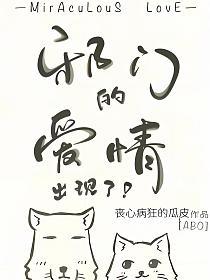 —MirAcuLouS LovE—
邪门
的
爱情
出现了!
丧心病狂的瓜皮作品
[ABO]